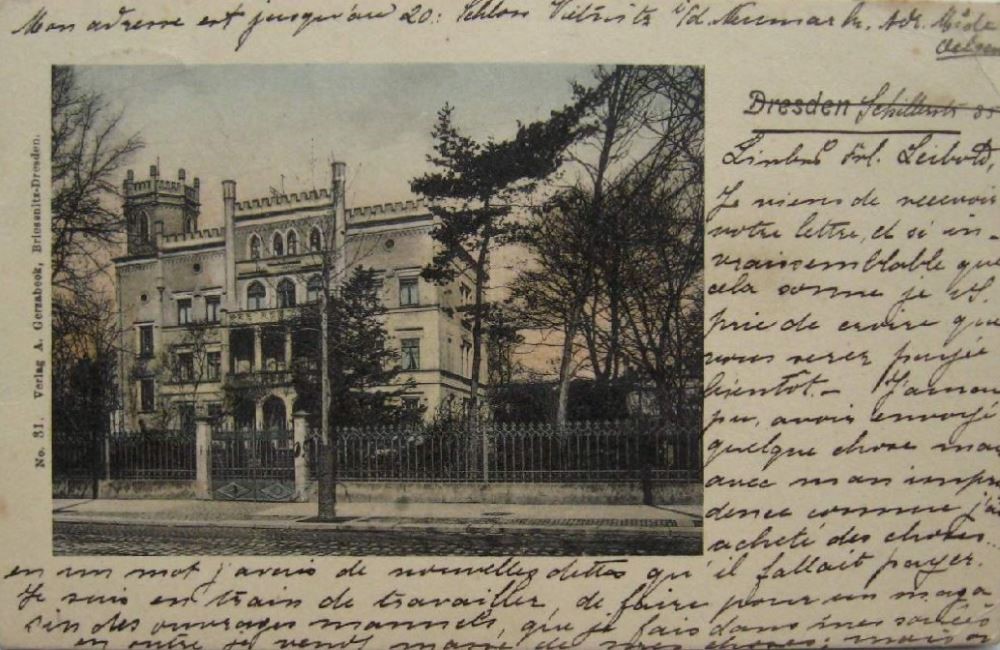 Mon adresse est jusqu'au 20: Schloss i/d. Neumark. Adr.
Dresden
No. 31. Verlag A. Gerzabock, Briessnitz-Dresden.
Frl. Leibold,
Je viens de recevoir
votre lettre, et si in-
vraisemblable que
cela sonne je vs.
prie de croire que
vous serez payée
bientôt. –
pu, avoir envoyé
quelque chose mais
avec mon impru
dence comme j'ai
acheté des choses
en un mot j'avais de nouvelles dettes qu'il fallait payer.
Je suis en train de travailler, de faire pour un maga
sin des ouvrages manuels, que je fais dans mes soirées
en outre je vends masse de mes choses; mais